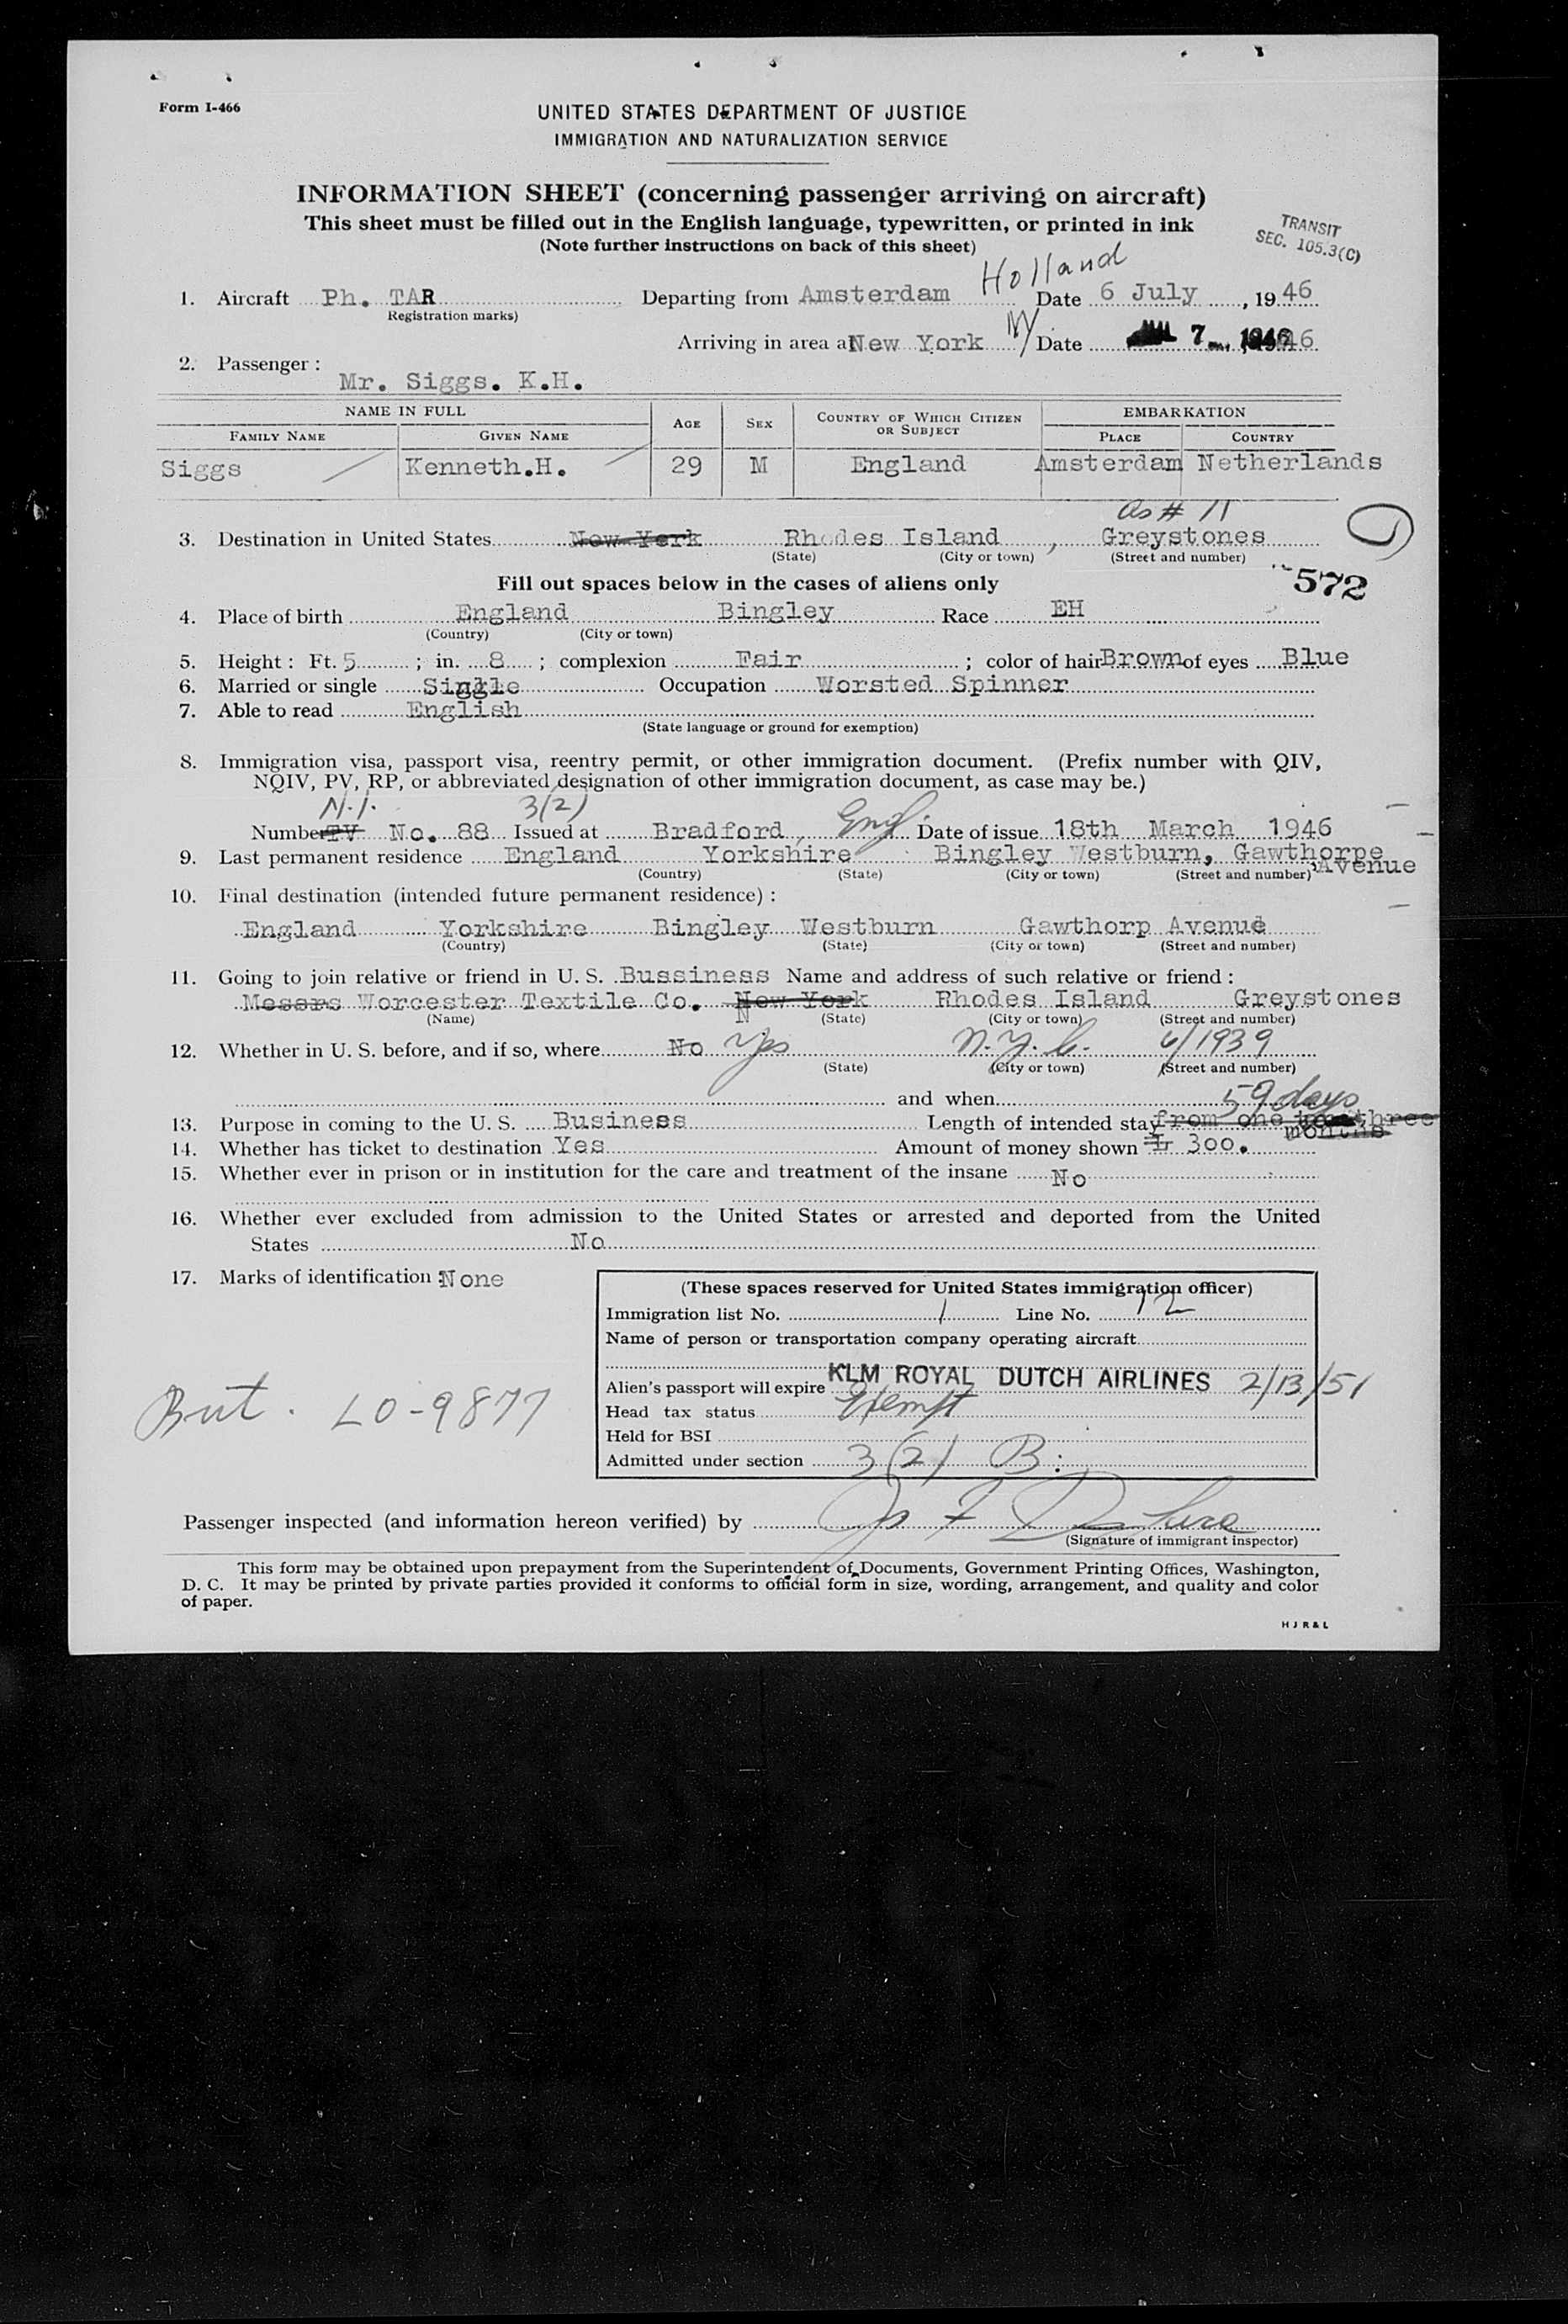 Form I-466
UNITED STATES DEPARTMENT OF JUSTICE
IMMIGRATION AND NATURALIZATION SERVICE
INFORMATION SHEET (concerning passenger arriving on aircraft)
This sheet must be filled out in the English language, typewritten, or printed in ink
(Note further instructions on back of this sheet)
TRANSIT
SEC. 105.3(C)
Holland
1. Aircraft Ph. TAR Departing from Amsterdam Date 6 July, 1946
Registration marks)
Arriving in area a New York NY Date 7 1946 46
2. Passenger :
Mr. Siggs. K.H.
NAME IN FULL AGE SEX COUNTRY OF WHICH CITIZEN OR SUBJECT EMBARKATION
FAMILY NAME GIVEN NAME PLACE COUNTRY
Siggs Kenneth.H. 29 M England Amsterdam Netherlands
as # 11
3. Destination in United States New York Rhodes Island , Greystones
(State) (City or town) (Street and number)
Fill out spaces below in the cases of aliens only
572
4. Place of birth England Bingley Race EH
(Country) (City or town)
5. Height : Ft. 5 ; in. 8 ; complexion Fair ; color of hair Brown of eyes Blue
6. Married or single Single Occupation Worsted Spinner
7. Able to read English
(State language or ground for exemption)
8. Immigration visa, passport visa, reentry permit, or other immigration document. (Prefix number with QIV,
NQIV, PV, RP, or abbreviated designation of other immigration document, as case may be.)
N.I. 3(2)
Number PV No. 88 Issued at Bradford, Engl. Date of issue 18th March 1946
9. Last permanent residence England Yorkshire Bingley Westburn, Gawthorpe
Avenue
(Country) (State) (City or town) (Street and number)
10. Final destination (intended future permanent residence) :
England Yorkshire Bingley Westburn Gawthorp Avenue
(Country) (State) (City or town) (Street and number)
11. Going to join relative or friend in U. S. Bussiness Name and address of such relative or friend :
Messrs Worcester Textile Co. New York Rhodes Island Greystones
(Name) (State) (City or town) (Street and number)
12. Whether in U. S. before, and if so, where No Yes N.Y.C. 6/1939
(State) (City or town) (Street and number)
and when 59 days
13. Purpose in coming to the U. S. Business Length of intended stay from one to three
months
14. Whether has ticket to destination Yes Amount of money shown 300.
15. Whether ever in prison or in institution for the care and treatment of the insane No
16. Whether ever excluded from admission to the United States or arrested and deported from the United
States No
17. Marks of identification : None
(These spaces reserved for United States immigration officer)
Immigration list No. 1 Line No. 12
Name of person or transportation company operating aircraft
KLM ROYAL DUTCH AIRLINES
Alien's passport will expire 2/13/51
Head tax status Exempt
Held for BSI
Admitted under section 3(2) B:
Brit. LO-9877
Passenger inspected (and information hereon verified) by
(Signature of immigrant inspector)
This form may be obtained upon prepayment from the Superintendent of Documents, Government Printing Offices, Washington,
D. C. It may be printed by private parties provided it conforms to official form in size, wording, arrangement, and quality and color
of paper.
H J R & L